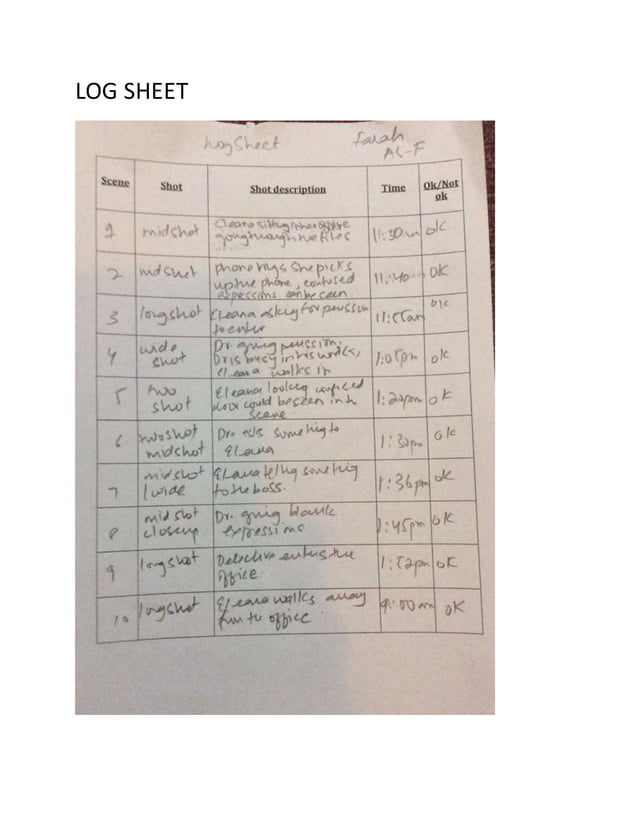 LOG SHEET
Log Sheet
Farah
AL-F
Scene Shot Shot description Time Ok/Not
ok
1 midshot Eleana sitting in her office
going through the files 11:30am ok
2 midshot phone rings She picks
up the phone, confused
expressions can be seen 11:40 OK
3 longshot Eleana asking for
to enter 11:55am ok
4 wide
shot Dr. giving
Dr is busy in his works,
Eleana walks in 1:05pm ok
5 two
shot Eleana looking
door could be seen in the
scene 1:20pm ok
6 two shot
midshot Dr. asks something to
Eleana 1:30pm ok
7 midshot
/wide Eleana telling something
to the boss. 1:36pm ok
8 mid shot
closeup Dr. giving blank
expressions 1:45pm ok
9 longshot Detective enters the
office. 1:52pm ok
10 longshot Eleana walks away
from the office 9:00am ok